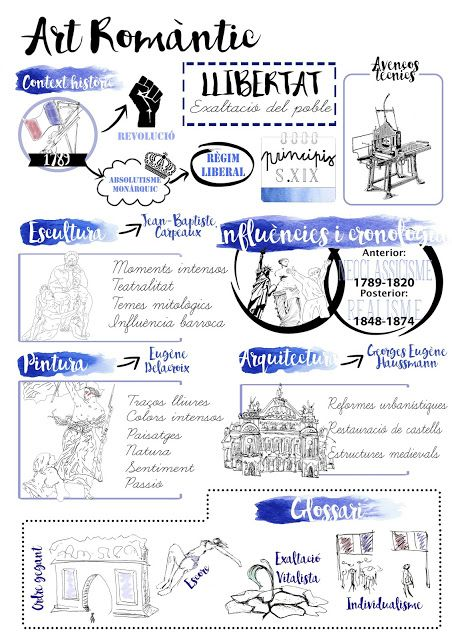 Art Romàntic
Context històric
1789
REVOLUCIÓ
ABSOLUTISME
MONÀRQUIC
RÈGIM
LIBERAL
LLIBERTAT
Exaltació del poble
principis
S.XIX
Avenços
tècnics
Escultura
Jean-Baptiste
Carpeaux
Moments intensos
Teatralitat
Temes mitològics
Influència barroca
Influències i cronologia
Anterior:
NEOCLASSICISME
1789-1820
Posterior:
REALISME
1848-1874
Pintura
Eugène
Delacroix
Traços lliures
Colors intensos
Paisatges
Natura
Sentiment
Passió
Arquitectura
Georges Eugène
Haussmann
Reformes urbanístiques
Restauració de castells
Estructures medievals
Glossari
Ordre gegant
Escorç
Exaltació
Vitalista
Individualisme